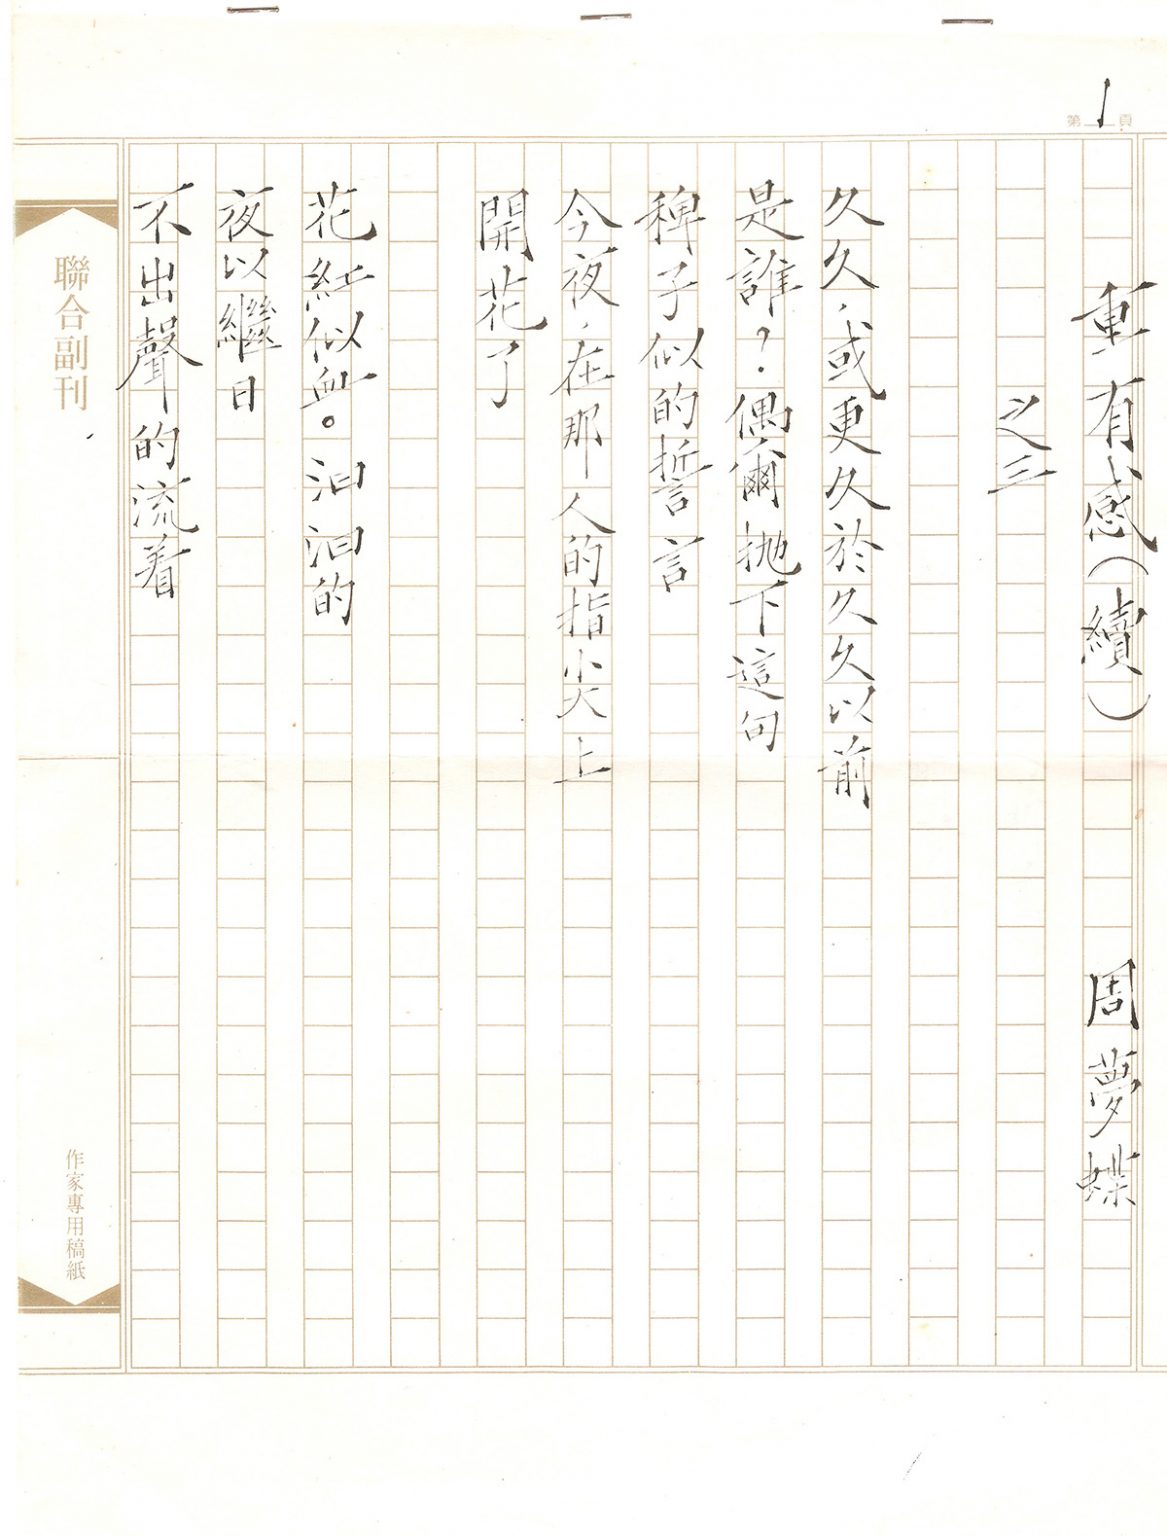 第1頁
重有感（續） 周夢蝶
之三
久久，或更久於久久以前
是誰？偶爾抛下這句
稗子似的誓言
今夜，在那人的指尖上
開花了
花紅似血。汩汩的
夜以繼日
不出聲的流着
聯合副刊
作家專用稿紙